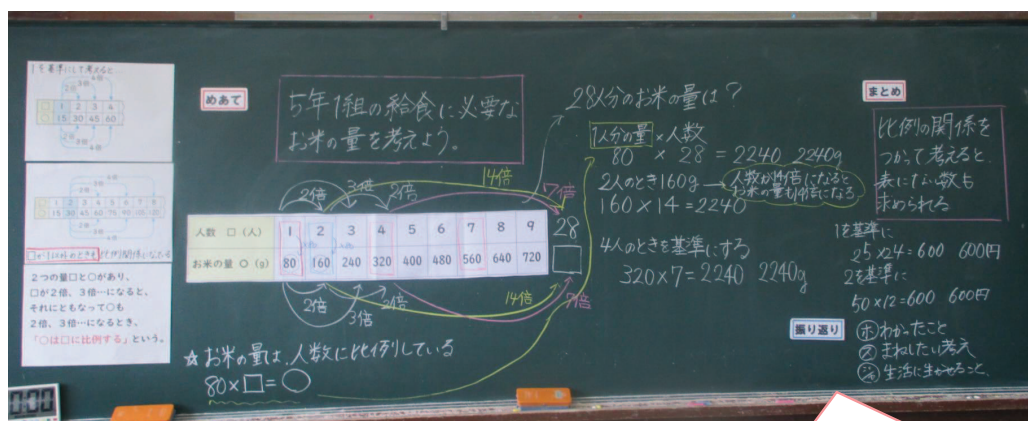 1を基準にして考えると…
2倍 3倍 4倍
□ 1 2 3 4
○ 15 30 45 60
2倍
3倍
4倍
□ 1 2 3 4 5 6 7 8
○ 15 30 45 60 75 90 105 120
2つの量□と○があり、
□が2倍、3倍…になると、
それにともなって○も
2倍、3倍…になるとき、
「○は□に比例する」という。
めあて
5年1組の給食に必要な
お米の量を考えよう。
2倍 3倍 2倍 14倍 7倍
人数 □(人) 1 2 3 4 5 6 7 8 9 28
お米の量 ○(g) 80 160 240 320 400 480 560 640 720 □
2倍 3倍 2倍 14倍 7倍
☆お米の量は、人数に比例している
80×□=○
28人分のお米の量は?
1人分の量×人数
80 × 28 = 2240 2240g
2人のとき160g→人数が14倍になると
お米の量も14倍になる
160×14=2240
4人のときを基準にする
320×7=2240 2240g
まとめ
比例の関係を
つかって考えると、
表にない数も
求められる
1を基準に
25×24=600 600円
2を基準に
50×12=600 600円
振り返り
ホ わかったこと
ス まねしたい考え
ジャ 生活に生かせること